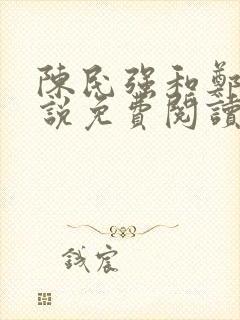 陳民強和鄭
說免費閱讀
錢宸